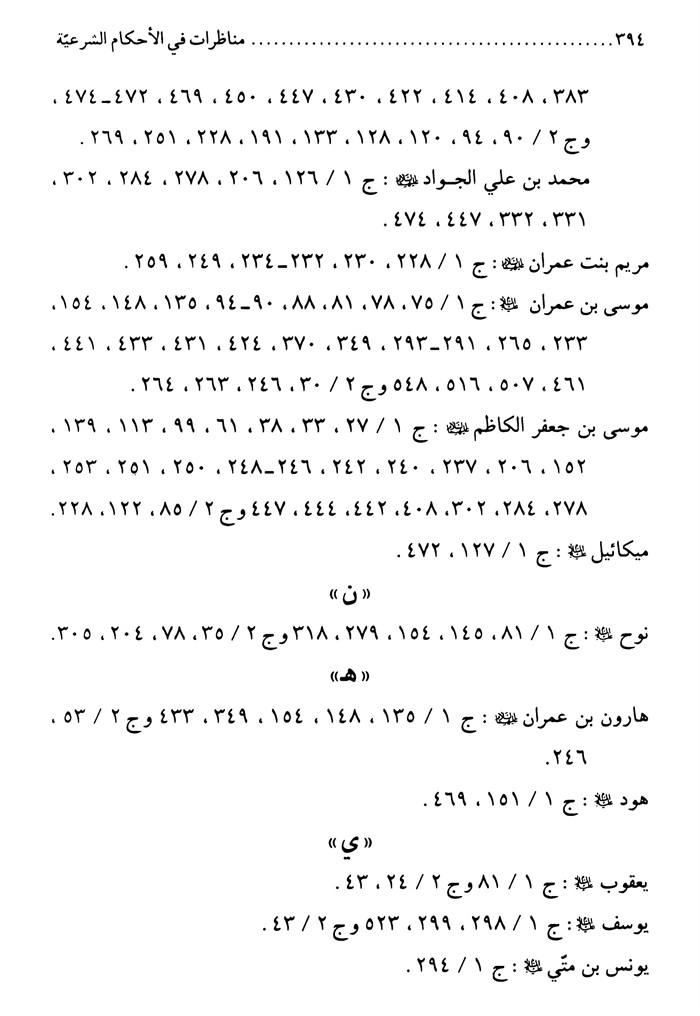 ٣٩٤................................................ مناظرات في الأحكام الشرعيّة
٣٨٣، ٤٠٨، ٤١٤، ٤٢٢، ٤٣٠، ٤٤٧، ٤٥٠، ٤٦٩، ٤٧٢ـ٤٧٤،
وج ٢ / ٩٠، ٩٤، ١٢٠، ١٢٨، ١٣٣، ١٩١، ٢٢٨، ٢٥١، ٢٦٩.
محمد بن علي الجـواد : ج ١ / ١٢٦، ٢٠٦، ٢٧٨، ٢٨٤، ٣٠٢،
٣٣١، ٣٣٢، ٤٤٧، ٤٧٤.
مريم بنت عمران : ج ١ / ٢٢٨، ٢٣٠، ٢٣٢ـ٢٣٤، ٢٤٩، ٢٥٩.
موسى بن عمران : ج ١ / ٧٥، ٧٨، ٨١، ٨٨، ٩٠ـ٩٤، ١٣٥، ١٤٨، ١٥٤،
٢٣٣، ٢٦٥، ٢٩١ـ٢٩٣، ٣٤٩، ٣٧٠، ٤٢٤، ٤٣١، ٤٣٣، ٤٤١،
٤٦١، ٥٠٧، ٥١٦، ٥٤٨ وج ٢ / ٣٠، ٢٤٦، ٢٦٣، ٢٦٤.
موسى بن جعفر الكاظم : ج ١ / ٢٧، ٣٣، ٣٨، ٦١، ٩٩، ١١٣، ١٣٩،
١٥٢، ٢٠٦، ٢٣٧، ٢٤٠، ٢٤٢، ٢٤٦ـ٢٤٨، ٢٥٠، ٢٥١، ٢٥٣،
٢٧٨، ٢٨٤، ٣٠٢، ٤٠٨، ٤٤٢، ٤٤٤، ٤٤٧ وج ٢ / ٨٥، ١٢٢، ٢٢٨.
ميكائيل : ج ١ / ١٢٧، ٤٧٢.
«ن»
نوح : ج ١ / ٨١، ١٤٥، ١٥٤، ٢٧٩، ٣١٨ وج ٢ / ٣٥، ٧٨، ٢٠٤، ٣٠٥.
«هـ»
هارون بن عمران : ج ١ / ١٣٥، ١٤٨، ١٥٤، ٣٤٩، ٤٣٣ وج ٢ / ٥٣،
٢٤٦.
هود : ج ١ / ١٥١، ٤٦٩.
«ي»
يعقوب : ج ١ / ٨١ وج ٢ / ٢٤، ٤٣.
يوسف : ج ١ / ٢٩٨، ٢٩٩، ٥٢٣ وج ٢ / ٤٣.
يونس بن متّي : ج ١ / ٢٩٤.